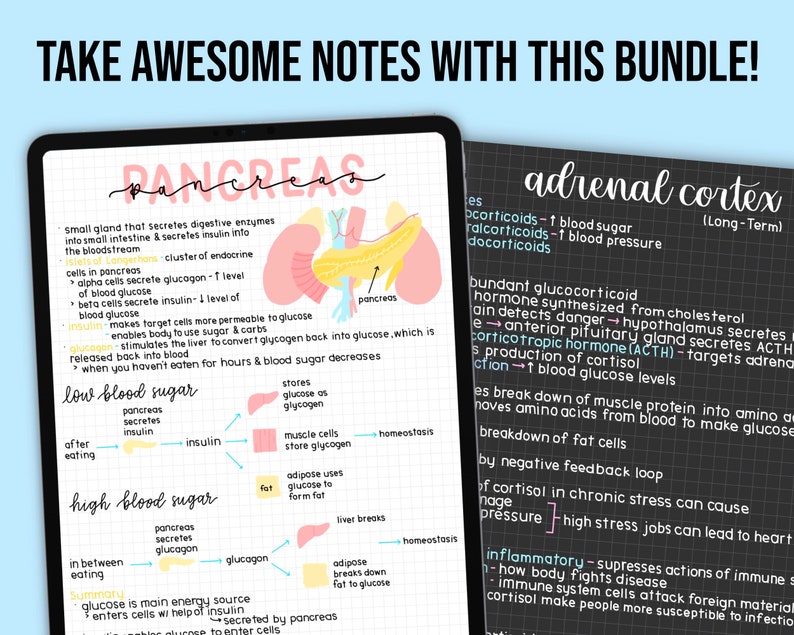 TAKE AWESOME NOTES WITH THIS BUNDLE!
PANCREAS
pancreas
· small gland that secretes digestive enzymes
into small intestine & secretes insulin into
the bloodstream
· islets of Langerhans - cluster of endocrine
cells in pancreas
> alpha cells secrete glucagon - ↑ level
of blood glucose
> beta cells secrete insulin - ↓ level of
blood glucose
· insulin - makes target cells more permeable to glucose
- enables body to use sugar & carbs
· glucagon - stimulates the liver to convert glycogen back into glucose, which is
released back into blood
> when you haven't eaten for hours & blood sugar decreases
pancreas
low blood sugar
after
eating
pancreas
secretes
insulin
insulin
stores
glucose as
glycogen
muscle cells
store glycogen
fat
adipose uses
glucose to
form fat
homeostasis
high blood sugar
in between
eating
pancreas
secretes
glucagon
glucagon
liver breaks
adipose
breaks down
fat to glucose
homeostasis
Summary
· glucose is main energy source
> enters cells w/ help of insulin
↳ secreted by pancreas
enables glucose to enter cells
adrenal cortex
(Long-Term)
ocorticoids - ↑ blood sugar
ralcorticoids - ↑ blood pressure
docorticoids
bundant glucocorticoid
hormone synthesized from cholesterol
ain detects danger → hypothalamus secretes
e → anterior pituitary gland secretes ACTH
corticotropic hormone (ACTH) - targets adrena
s production of cortisol
ction → ↑ blood glucose levels
es break down of muscle protein into amino a
moves amino acids from blood to make glucose
breakdown of fat cells
by negative feedback loop
of cortisol in chronic stress can cause
mage
pressure
high stress jobs can lead to heart
inflammatory - supresses actions of immune s
- how body fights disease
- immune system cells attack foreign material
cortisol make people more susceptible to infectio